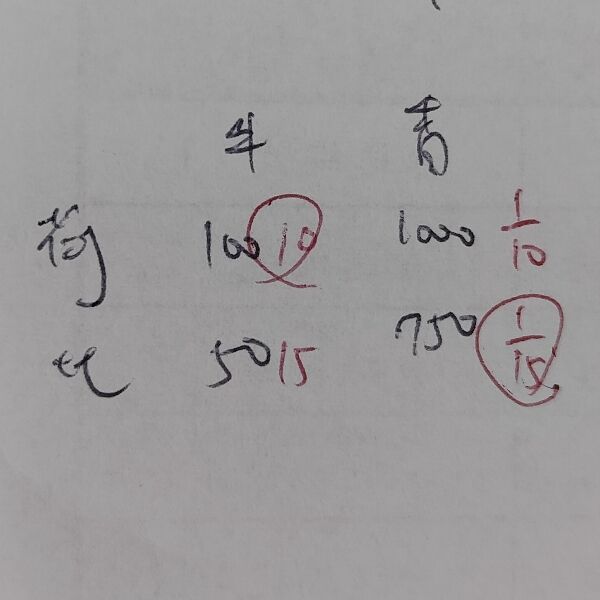 牛 青
荷 100 10 1000 1/10
比 50 15 750 1/15